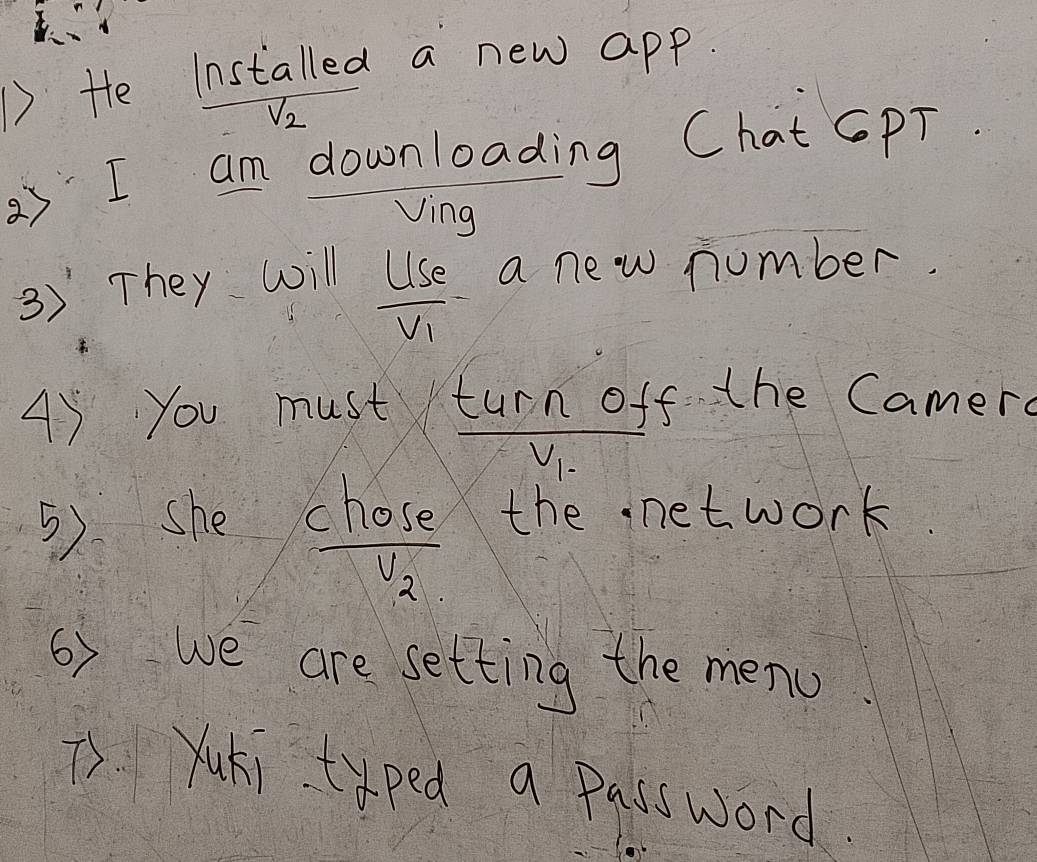 1) He Installed a new app.
V2
2) I am downloading Chat GPT.
Ving
3) They will Use a new number.
V1
4) You must turn off the Camera
V1.
5) She chose the network.
V2.
6) We are setting the menu.
7) Yuki typed a Password.